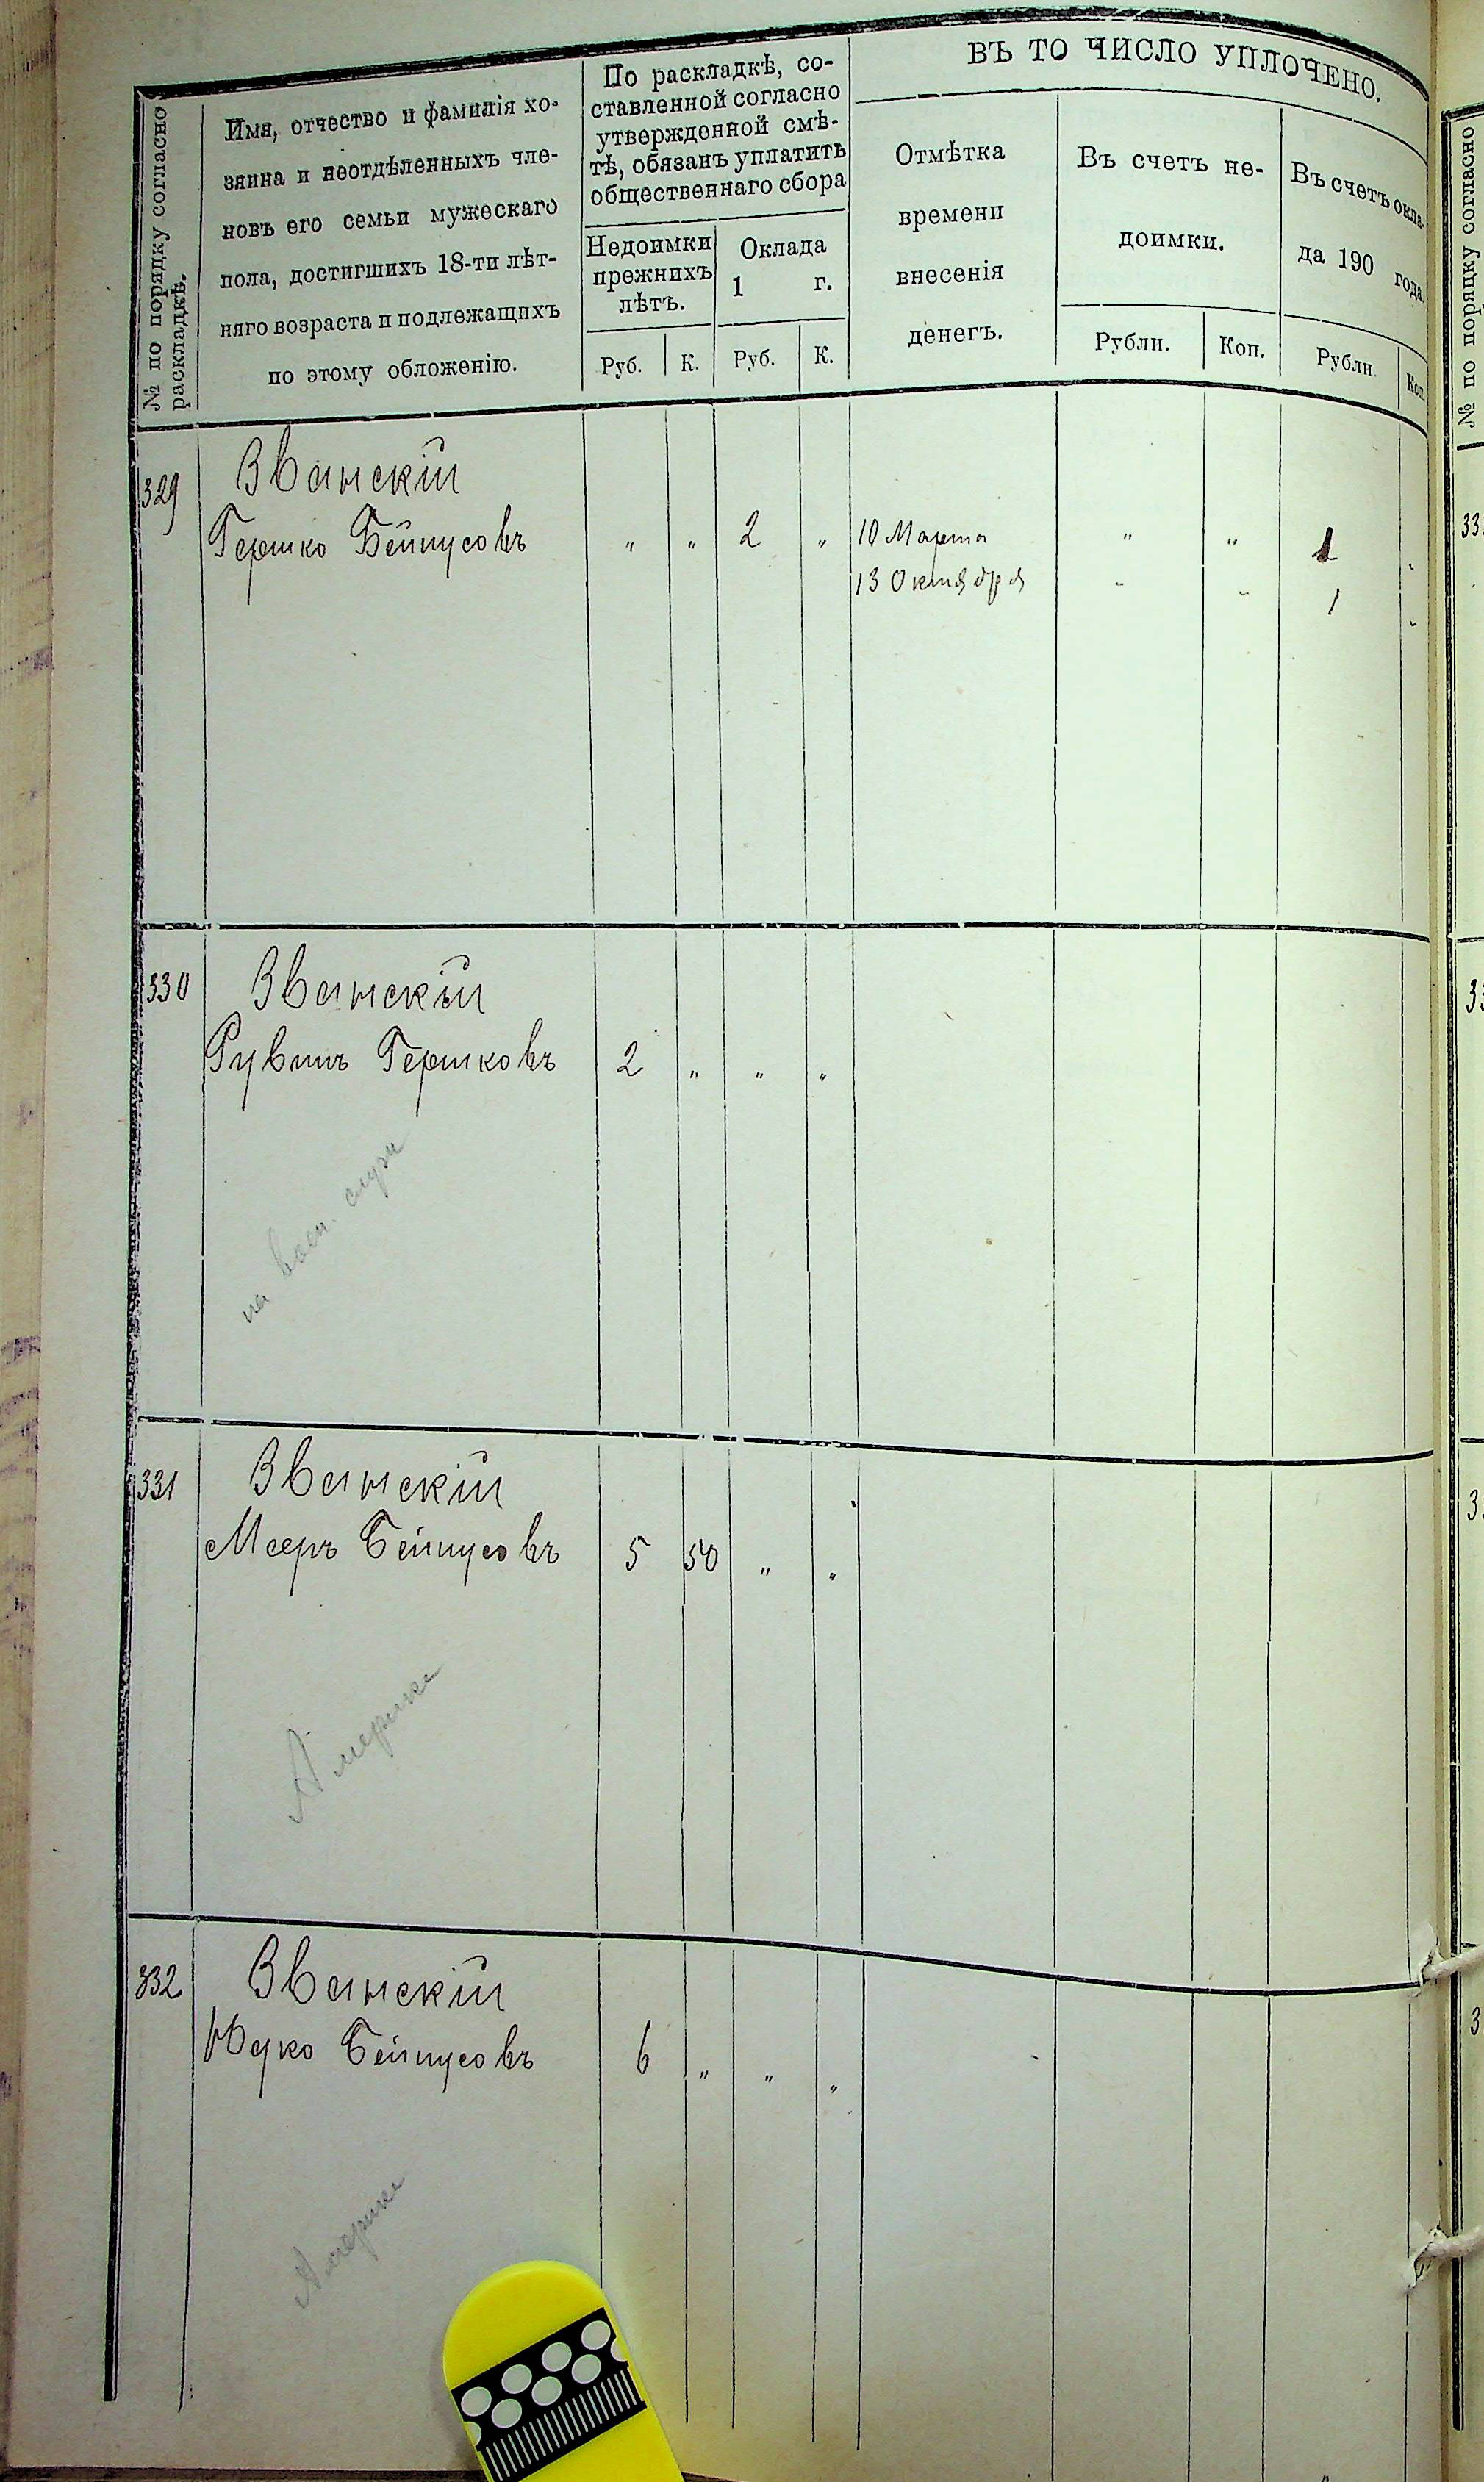 № по порядку согласно
раскладкѣ.
Имя, отчество и фамилія хо-
зяина и неотдѣленныхъ чле-
новъ его семьи мужескаго
пола, достигшихъ 18-ти лѣт-
няго возраста и подлежащихъ
по этому обложенію.
По раскладкѣ, со-
ставленной согласно
утвержденной смѣ-
тѣ, обязанъ уплатить
общественнаго сбора
Недоимки
прежнихъ
лѣтъ.
Оклада
1 г.
Руб. К. Руб. К.
ВЪ ТО ЧИСЛО УПЛОЧЕНО.
Отмѣтка
времени
внесенія
денегъ.
Въ счетъ не-
доимки.
Рубли. Коп.
Въ счетъ окла-
да 190 года.
Рубли. Коп.
329 Званскій
Гершко Бейнусовъ " " 2 " 10 Марта " " 1 "
13 Октября " " 1 "
330 Званскій
Рувинъ Гершковъ 2 " " "
на воен. служ
331 Званскій
Мееръ Бейнусовъ 5 50 " "
Америке
332 Званскій
Юдко Бейнусовъ 6 " " "
Америке
№ по порядку согласно
33
33
3
3